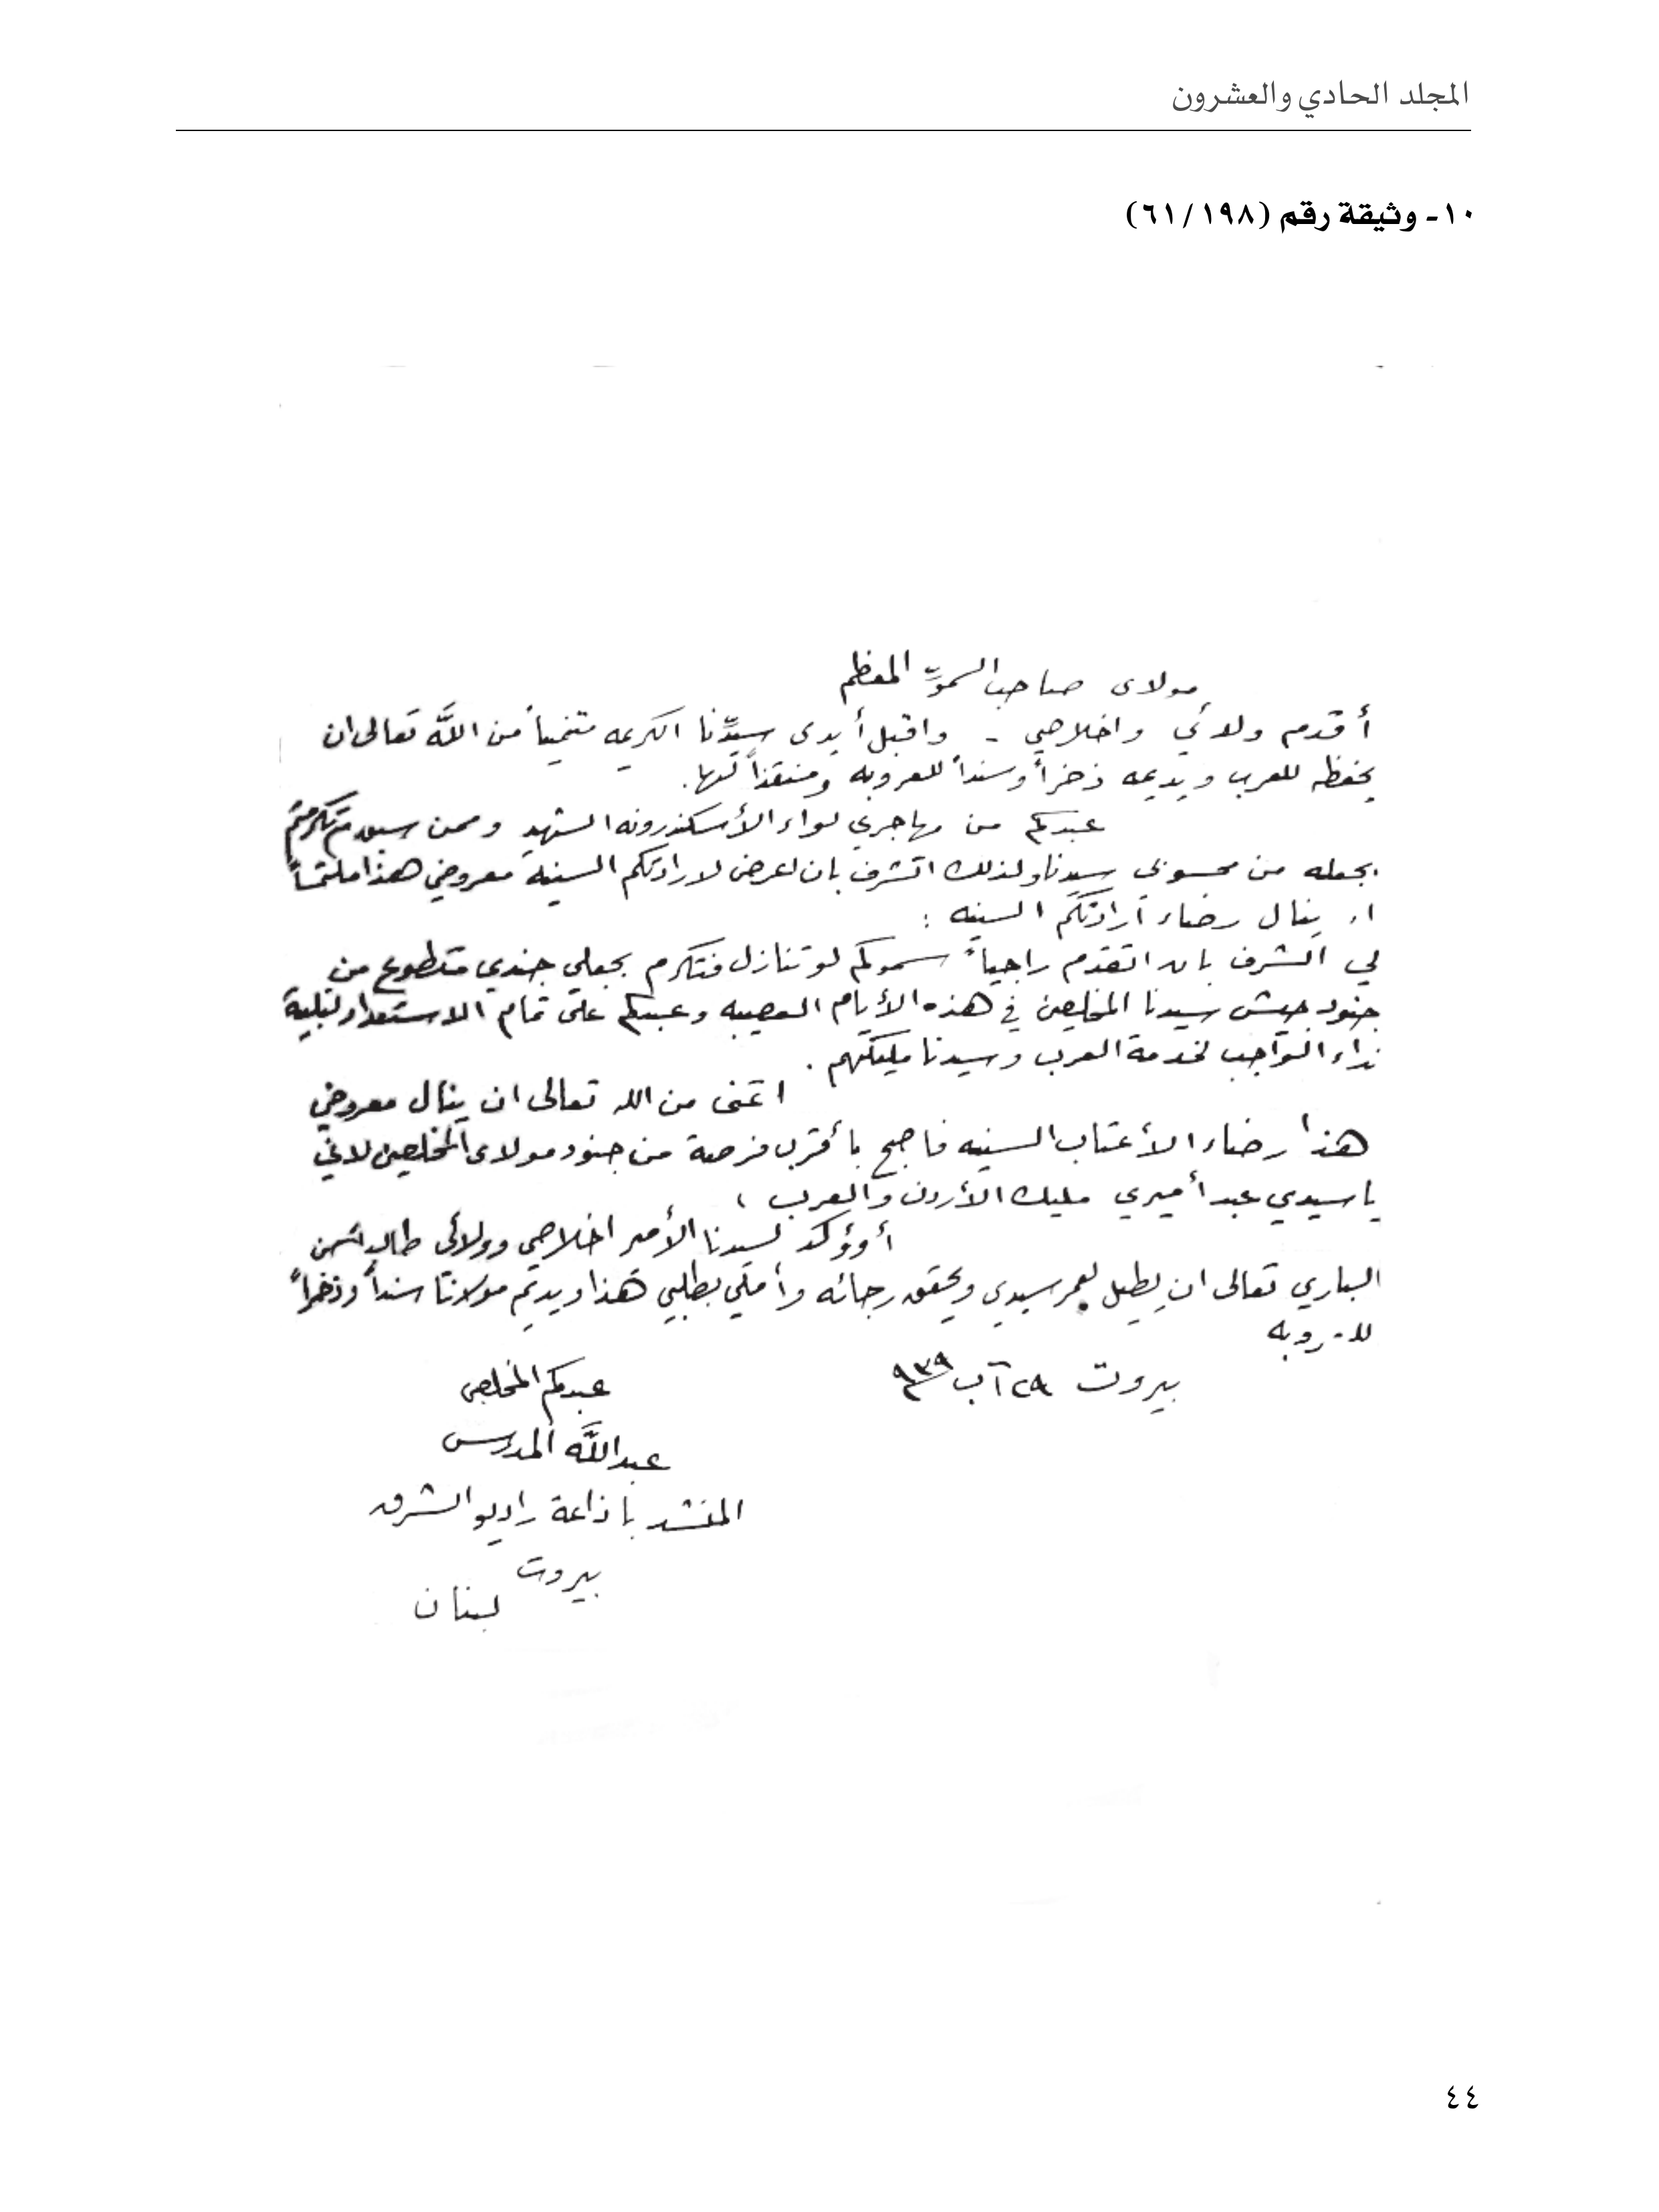 المجلد الحادي والعشرون
١٠- وثيقة رقم (٦١/١٩٨)
مولاى صاحب السموّ المعظم
أقدم ولائي واخلاصي - واقبل أيدى سيدّنا الكريمه متمنياً من اللّه تعالى ان
يحفظه للعرب ويديمه ذخراً وسنداً للعروبه ومنقذاً لها.
عبدكم من مهاجري لواء الأسكندرونه الشهيد وممن سبق تكرمتم
بجعله من محسوبي سيدنا ولذلك اتشرف بان اعرض لارادتكم السنيه معروضي هذا ملتمساً
ان ينال رضاء ارادتكم السنيه :
لي الشرف بان اتقدم راجياً سموكم لو تنازل فتكرم بجعلي جندي متطوع من
جنود جيش سيدنا المخلصين في هذه الأيام العصيبه وعبدكم على تمام الاستعداد لتلبية
نداء الواجب لخدمة العرب وسيدنا مليكهم .
اتمنى من الله تعالى ان ينال معروضي
هذا رضاء الأعتاب السنيه فاصبح بأقرب فرصة من جنود مولاى المخلصين لاني
يا سيدي عبد أميري مليك الأردن والعرب ،
أوؤكد لسيدنا الأمير اخلاصي وولائى طالب من
الباري تعالى ان يطيل بعمر سيدي ويحقق رجائه وأملي بطلبي هذا ويديم مولانا سنداً وذخراً
للعروبه
بيروت ٢٩ آب ٩٣٩
عبدكم المخلص
عبداللّه المدرس
المنشد باذاعة راديو الشرق
بيروت
لبنان
٤٤